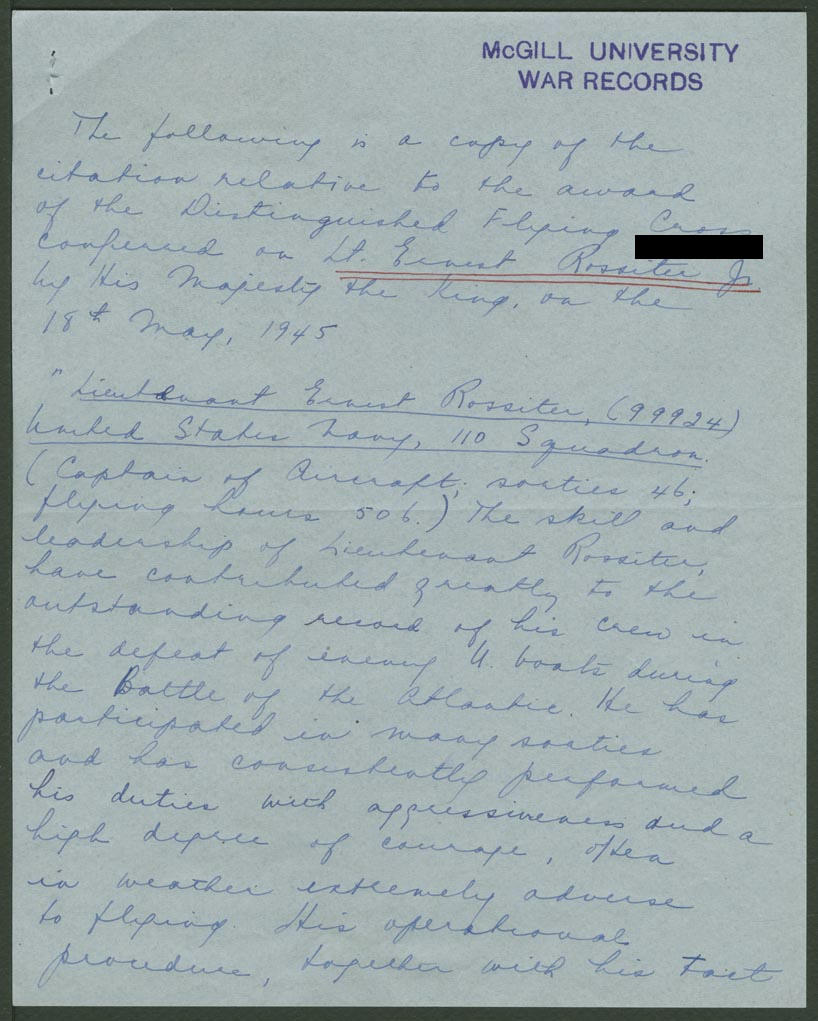 McGILL UNIVERSITY
WAR RECORDS
The following is a copy of the
citation relative to the award
of the Distinguished Flying Cross
conferred on Lt. Ernest Rossiter Jr.
by His Majesty the King, on the
18th May, 1945
"Lieutenant Ernest Rossiter, (99924)
United States Navy, 110 Squadron.
(Captain of Aircraft; sorties 46;
flying hours 506.) The skill and
leadership of Lieutenant Rossiter,
have contributed greatly to the
outstanding record of his crew in
the defeat of enemy U. boats during
the Battle of the Atlantic. He has
participated in many sorties
and has consistently performed
his duties with aggressiveness and a
high degree of courage, often
in weather extremely adverse
to flying. His operational
procedure, together with his tact